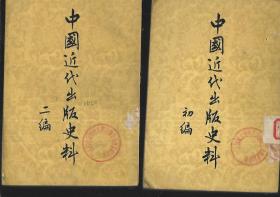 中國近代出版史料
二编
中國近代出版史料
初编